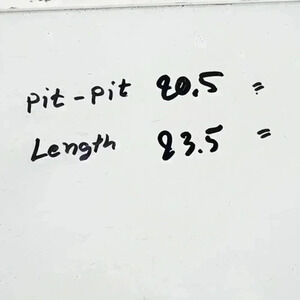 pit-pit 20.5 "
Length 23.5 "